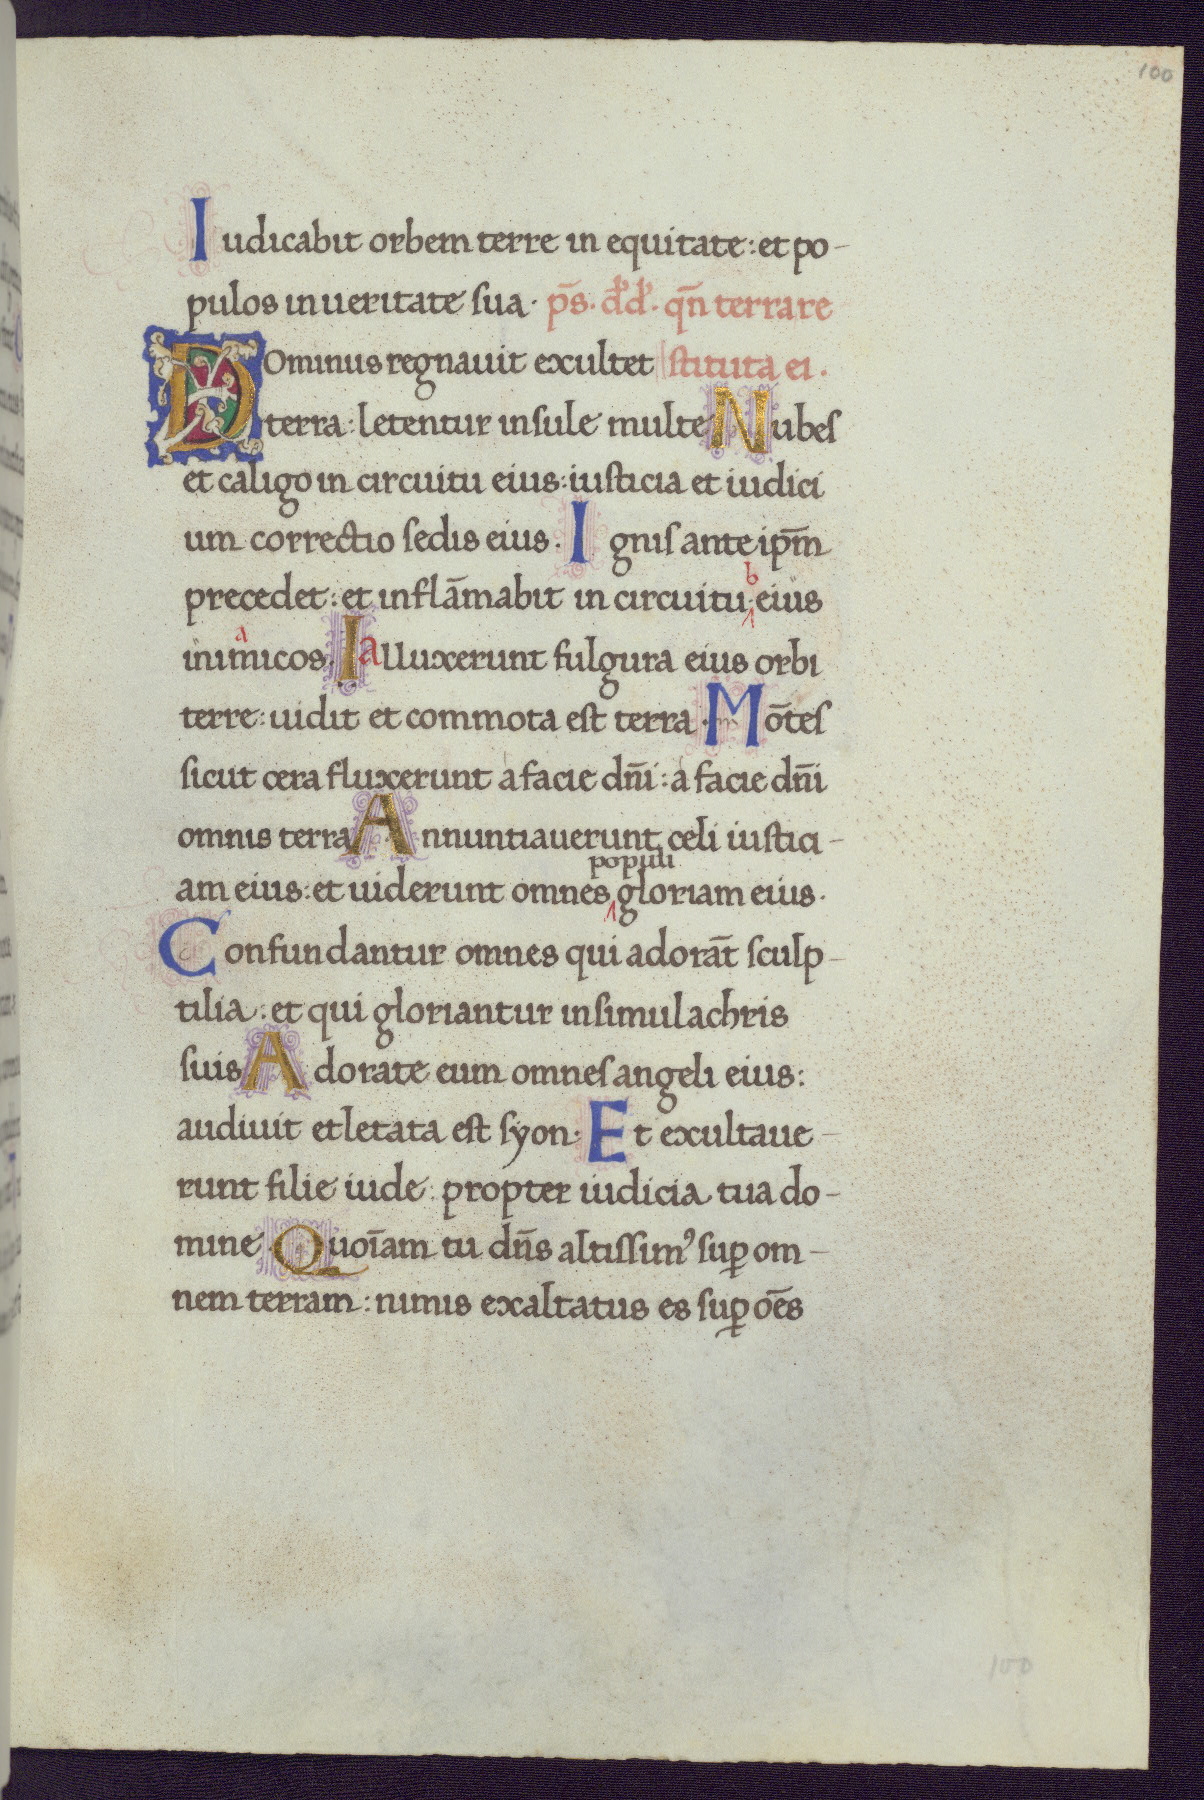 100
Iudicabit orbem terre in equitate: et po-
pulos in ueritate sua. ps̄. dd. qn̄ terra re
Dominus regnauit exultet stituta ei.
terra: letentur insule multe Nubes
et caligo in circuitu eius: iusticia et iudici
um correctio sedis eius. Ignis ante ipm̄
precedet: et inflām̄abit in circuitu b eius
a inimicos. Ialluxerunt fulgura eius orbi
terre: uidit et commota est terra. Mōtes
sicut cera fluxerunt a facie dn̄i: a facie dn̄i
omnis terra Annuntiauerunt celi iustici-
am eius: et uiderunt omnes populi gloriam eius.
Confundantur omnes qui adorāt sculp-
tilia: et qui gloriantur in simulachris
suis Adorate eum omnes angeli eius:
audiuit et letata est syon. Et exultaue-
runt filie iude: propter iudicia tua do-
mine. Quoīam tu dn̄s altissimꝰ suꝑ om-
nem terram: nimis exaltatus es suꝑ oēs
100